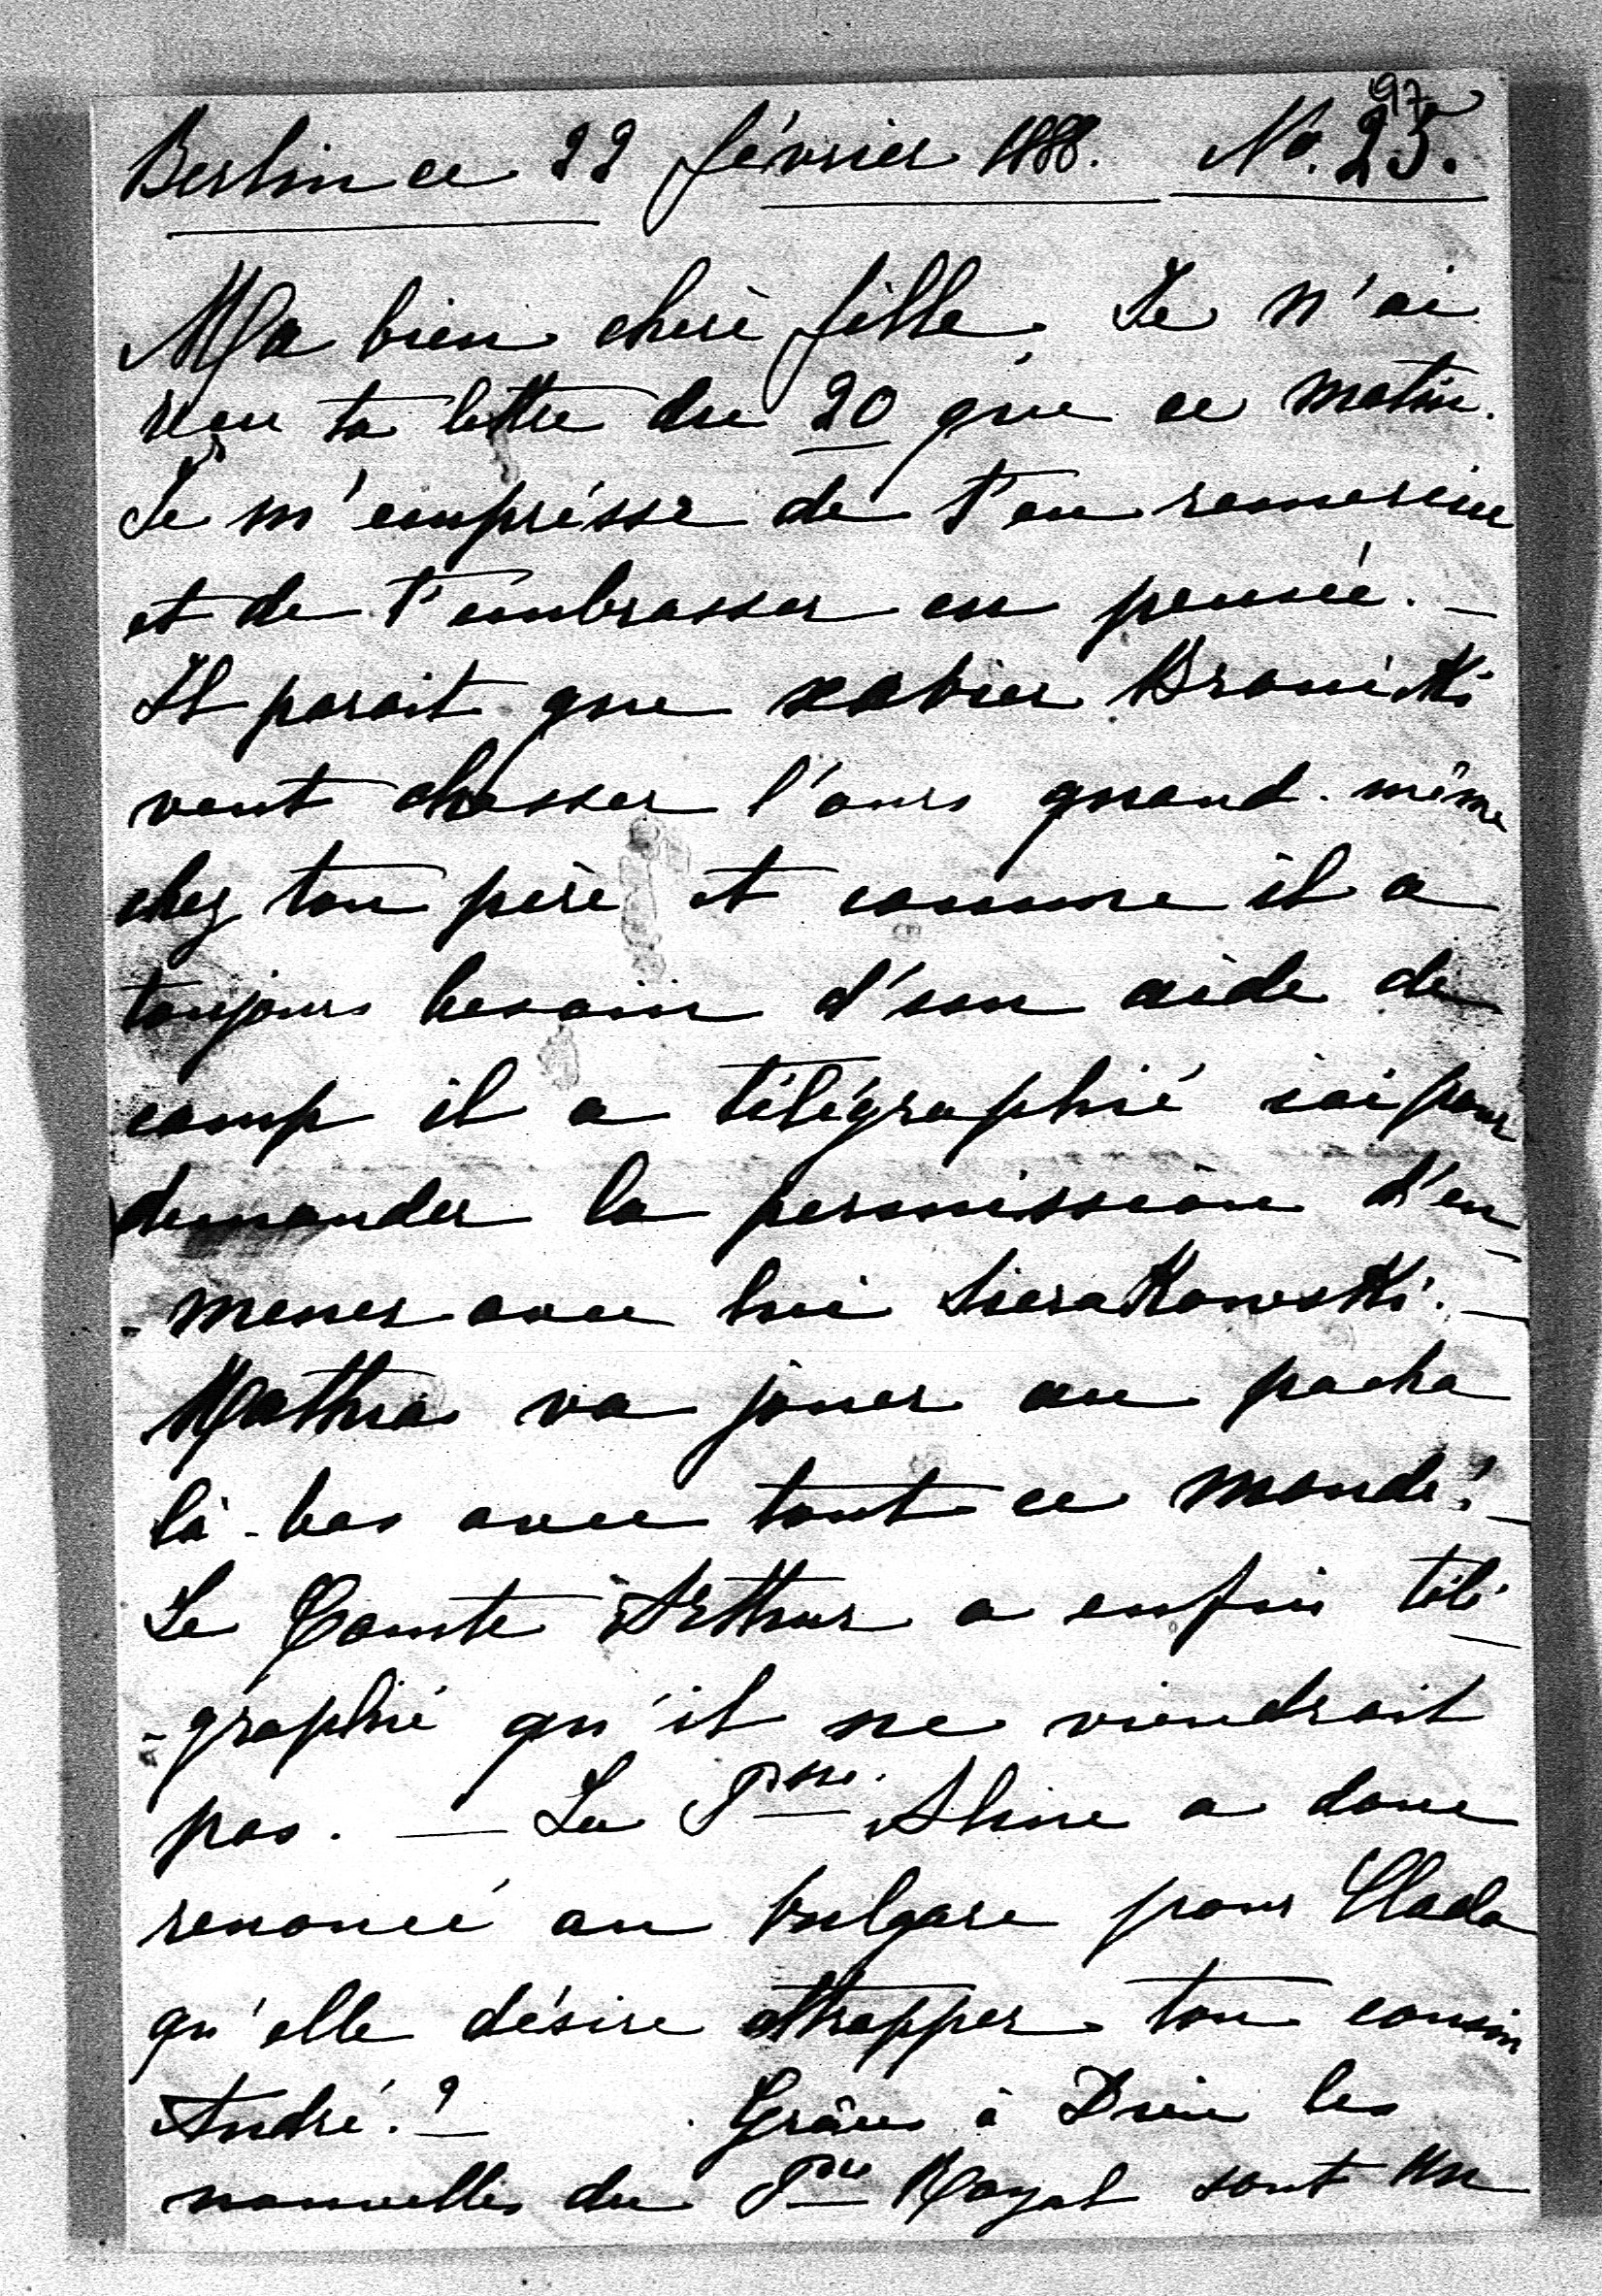 97
Berlin ce 22 février 1888. No. 25.
Ma bien cherè fille. Je n'ai
reçu ta lettre du 20 que ce matin.
Je m'emprésse de t'en remercier
et de t'embrasser en pensée. —
Il parait que Xavier Braniski
veut chasser l'ours quand-même
chez ton perè et comme il a
toujours besoin d'son aide de
camp il a télégraphié ici pour
demander la permission d'em
-mener avec lui Sierakowski. —
Mathias va jouer au pacha
là-bas avec tout ce monde! —
Le Comte Arthur a enfin télé
-graphié qu'il ne viendrait
pas. — La Psse. Aline a donc
renoncé au bulgare pour Vlada
qu'elle désire attrapper ton cousin
André.? — Grâces à Dieu les
nouvelles du Pce Royal sont un